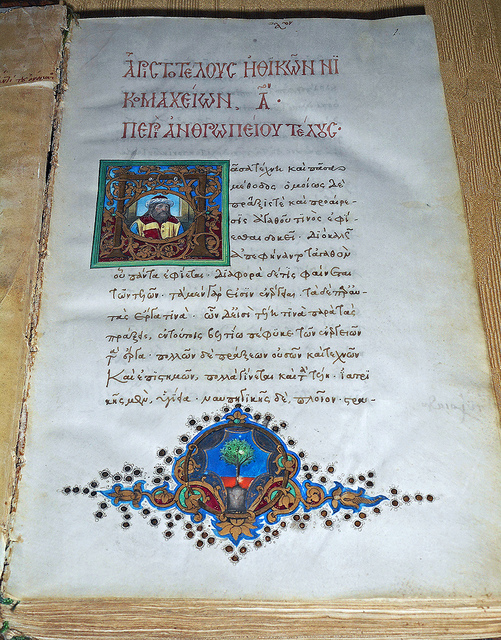 ἈΡΙΣΤΟΤΕΛΟΥΣ ἨΘΙΚΩ͂Ν ΝΙ
ΚΟΜΑΧΕΙΩΝ, Α̅·
ΠΕΡῚ ἈΝΘΡΩΠΕΙΟΥ ΤΕΛΟΥΣ·
Πᾶσα τέχνη καὶ πᾶσα
μέθοδος ὁμοίως δὲ
πρᾶξίς τε καὶ προαίρε-
σις ἀγαθοῦ τινὸς ἐφί-
εσθαι δοκεῖ· διὸ καλῶς
ἀπεφήναντο τἀγαθὸν
οὗ πάντα ἐφίεται· διαφορὰ δέ τις φαίνεται
τῶν τελῶν· τὰ μὲν γάρ εἰσιν ἐνέργειαι· τὰ δὲ παρ' αὐ-
τὰς ἔργα τινά· ὧν δ' εἰσὶ τέλη τινὰ παρὰ τὰς
πράξεις, ἐν τούτοις βελτίω πέφυκε τῶν ἐνεργειῶν
τὰ ἔργα· πολλῶν δὲ πράξεων οὐσῶν καὶ τεχνῶν
καὶ ἐπιστημῶν, πολλὰ γίνεται καὶ τὰ τέλη· ἰατρι
κῆς μὲν, ὑγίεια· ναυπηγικῆς δὲ, πλοῖον· στρα-